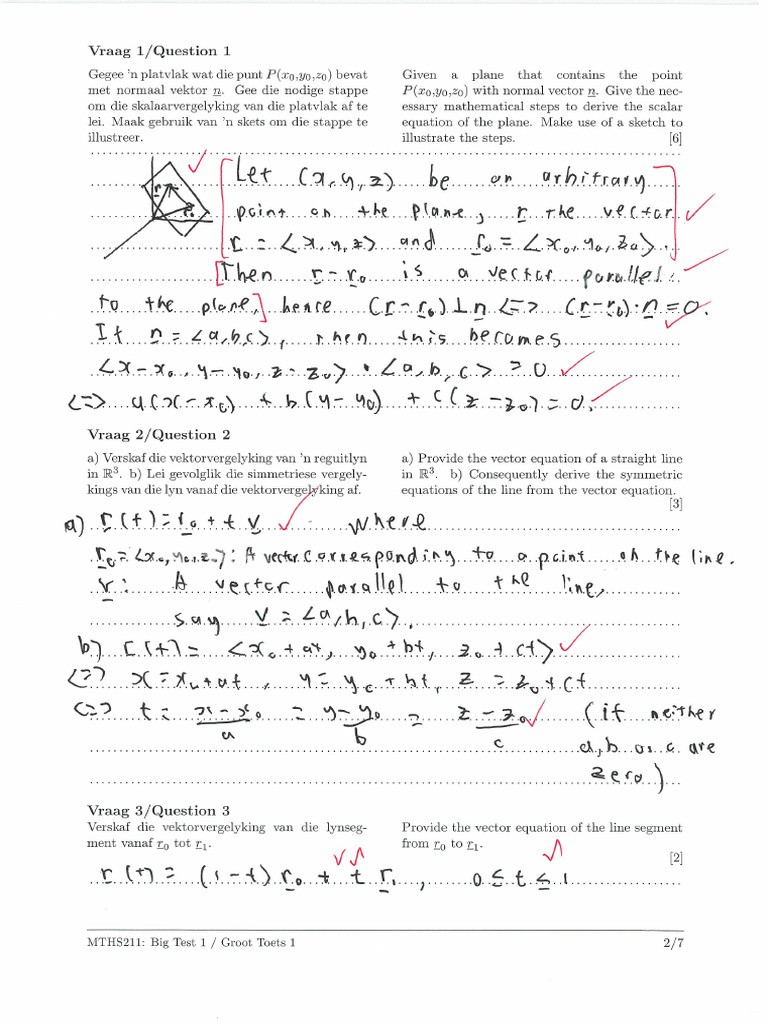 Vraag 1/Question 1
Gegee 'n platvlak wat die punt P(x₀,y₀,z₀) bevat
met normaal vektor n. Gee die nodige stappe
om die skalaarvergelyking van die platvlak af te
lei. Maak gebruik van 'n skets om die stappe te
illustreer.
Given a plane that contains the point
P(x₀,y₀,z₀) with normal vector n. Give the nec-
essary mathematical steps to derive the scalar
equation of the plane. Make use of a sketch to
illustrate the steps.
[6]
r
r₀
Let (x, y, z) be an arbitrary
point on the plane, r the vector
r = <x, y, z> and r₀ = <x₀, y₀, z₀>.
[Then r - r₀ is a vector parallel
to the plane,] hence (r-r₀)⊥n <=> (r-r₀)·n = 0.
If n = <a,b,c>, then this becomes
<x-x₀, y-y₀, z-z₀> · <a,b,c> = 0
<=> a(x-x₀) + b(y-y₀) + c(z-z₀) = 0.
Vraag 2/Question 2
a) Verskaf die vektorvergelyking van 'n reguitlyn
in ℝ³. b) Lei gevolglik die simmetriese vergely-
kings van die lyn vanaf die vektorvergelyking af.
a) Provide the vector equation of a straight line
in ℝ³. b) Consequently derive the symmetric
equations of the line from the vector equation.
[3]
a) r(t) = r₀ + t v where
r₀ = <x₀, y₀, z₀>: A vector corresponding to a point on the line.
v: A vector parallel to the line,
say v = <a,b,c>.
b) r(t) = <x₀ + at, y₀ + bt, z₀ + ct>
<=> x = x₀ + at, y = y₀ + bt, z = z₀ + ct
<=> t = (x-x₀)/a = (y-y₀)/b = (z-z₀)/c (if neither
a, b or c are
zero)
Vraag 3/Question 3
Verskaf die vektorvergelyking van die lynseg-
ment vanaf r₀ tot r₁.
Provide the vector equation of the line segment
from r₀ to r₁.
[2]
r(t) = (1-t) r₀ + t r₁, 0 ≤ t ≤ 1
MTHS211: Big Test 1 / Groot Toets 1
2/7